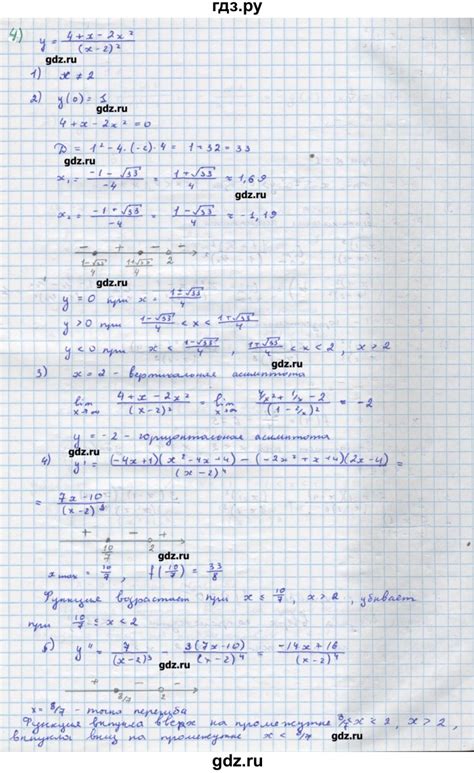 гдз.ру
4) y = (4+x-2x²)/(x-2)²
гдз.ру
1) x ≠ 2
2) y(0) = 1
гдз.ру
4+x-2x² = 0
D = 1²-4·(-2)·4 = 1+32 = 33
гдз.ру
x₁ = (-1-√33)/-4 = (1+√33)/4 ≈ 1,69
x₂ = (-1+√33)/-4 = (1-√33)/4 ≈ -1,19
гдз.ру
- + - -
(1-√33)/4 (1+√33)/4 2
гдз.ру
y = 0 при x = (1±√33)/4
y > 0 при (1-√33)/4 < x < (1+√33)/4
гдз.ру
y < 0 при x < (1-√33)/4, (1+√33)/4 < x < 2, x > 2
гдз.ру
3) x = 2 - вертикальная асимптота
lim x→∞ (4+x-2x²)/(x-2)² = lim x→∞ (4/x²+1/x-2)/(1-2/x)² = -2
гдз.ру
y = -2 - горизонтальная асимптота
гдз.ру
4) y' = ((-4x+1)(x²-4x+4)-(-2x²+x+4)(2x-4))/(x-2)⁴ =
= (7x-10)/(x-2)³
гдз.ру
+ - +
10/7 2
гдз.ру
x max = 10/7, f(10/7) = 33/8
гдз.ру
Функция возрастает при x ≤ 10/7, x > 2, убывает
при 10/7 ≤ x < 2
гдз.ру
5) y'' = 7/(x-2)³ - 3(7x-10)/(x-2)⁴ = (-14x+16)/(x-2)⁴
гдз.ру
+ - -
8/7 2
гдз.ру
x = 8/7 - точка перегиба
Функция выпукла вверх на промежутке 8/7 < x < 2, x > 2,
выпукла вниз на промежутке x < 8/7
гдз.ру